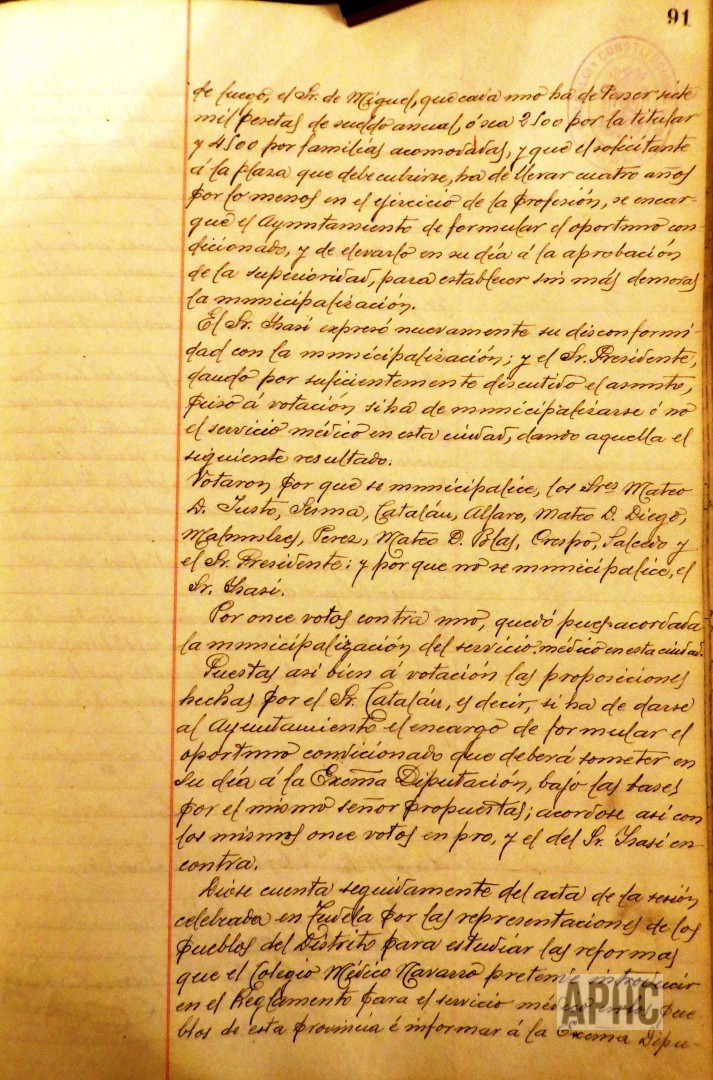 91
de luego, el Sr. de Miguel, que cada uno ha de tener siete
mil pesetas de sueldo anual, ó sea 2500 por la titular
y 4500 por familias acomodadas, y que el solicitante
á la plaza que debe cubrirse, ha de llevar cuatro años
por lo menos en el ejercicio de la profesión, se encar-
gue el Ayuntamiento de formular el oportuno con-
dicionado, y de elevarlo en su día á la aprobación
de la superioridad, para establecer sin más demoras
la municipalización.
El Sr. Isasi expresó nuevamente su disconformi-
dad con la municipalización; y el Sr. Presidente,
dando por suficientemente discutido el asunto,
puso á votación si ha de municipalizarse ó no
el servicio médico en esta ciudad, dando aquella el
siguiente resultado.
Votaron por que se municipalice, los Sres Mateo
D. Justo, Sesma, Catalán, Alfaro, Mateo D. Diego,
Perez, Mateo D. Blas, Crespo, Salcedo y
el Sr. Presidente: y por que no se municipalice, el
Sr. Isasi.
Por once votos contra uno, quedó pues acordada
la municipalización del servicio médico en esta ciudad.
Puestas asi bien á votación las proposiciones
hechas por el Sr. Catalán, es decir, si ha de darse
al Ayuntamiento el encargo de formular el
oportuno condicionado que deberá someter en
su día á la Excma Diputación, bajo las bases
por el mismo señor propuestas; acordose asi con
los mismos once votos en pro, y el del Sr. Isasi en
contra.
Diose cuenta seguidamente del acta de la sesión
celebrada en Tudela por las representaciones de los
pueblos del Distrito para estudiar las reformas
que el Colegio Médico Navarro pretende introducir
en el Reglamento para el servicio médico en los pue-
blos de esta provincia é informar á la Excma Dipu-
APHC